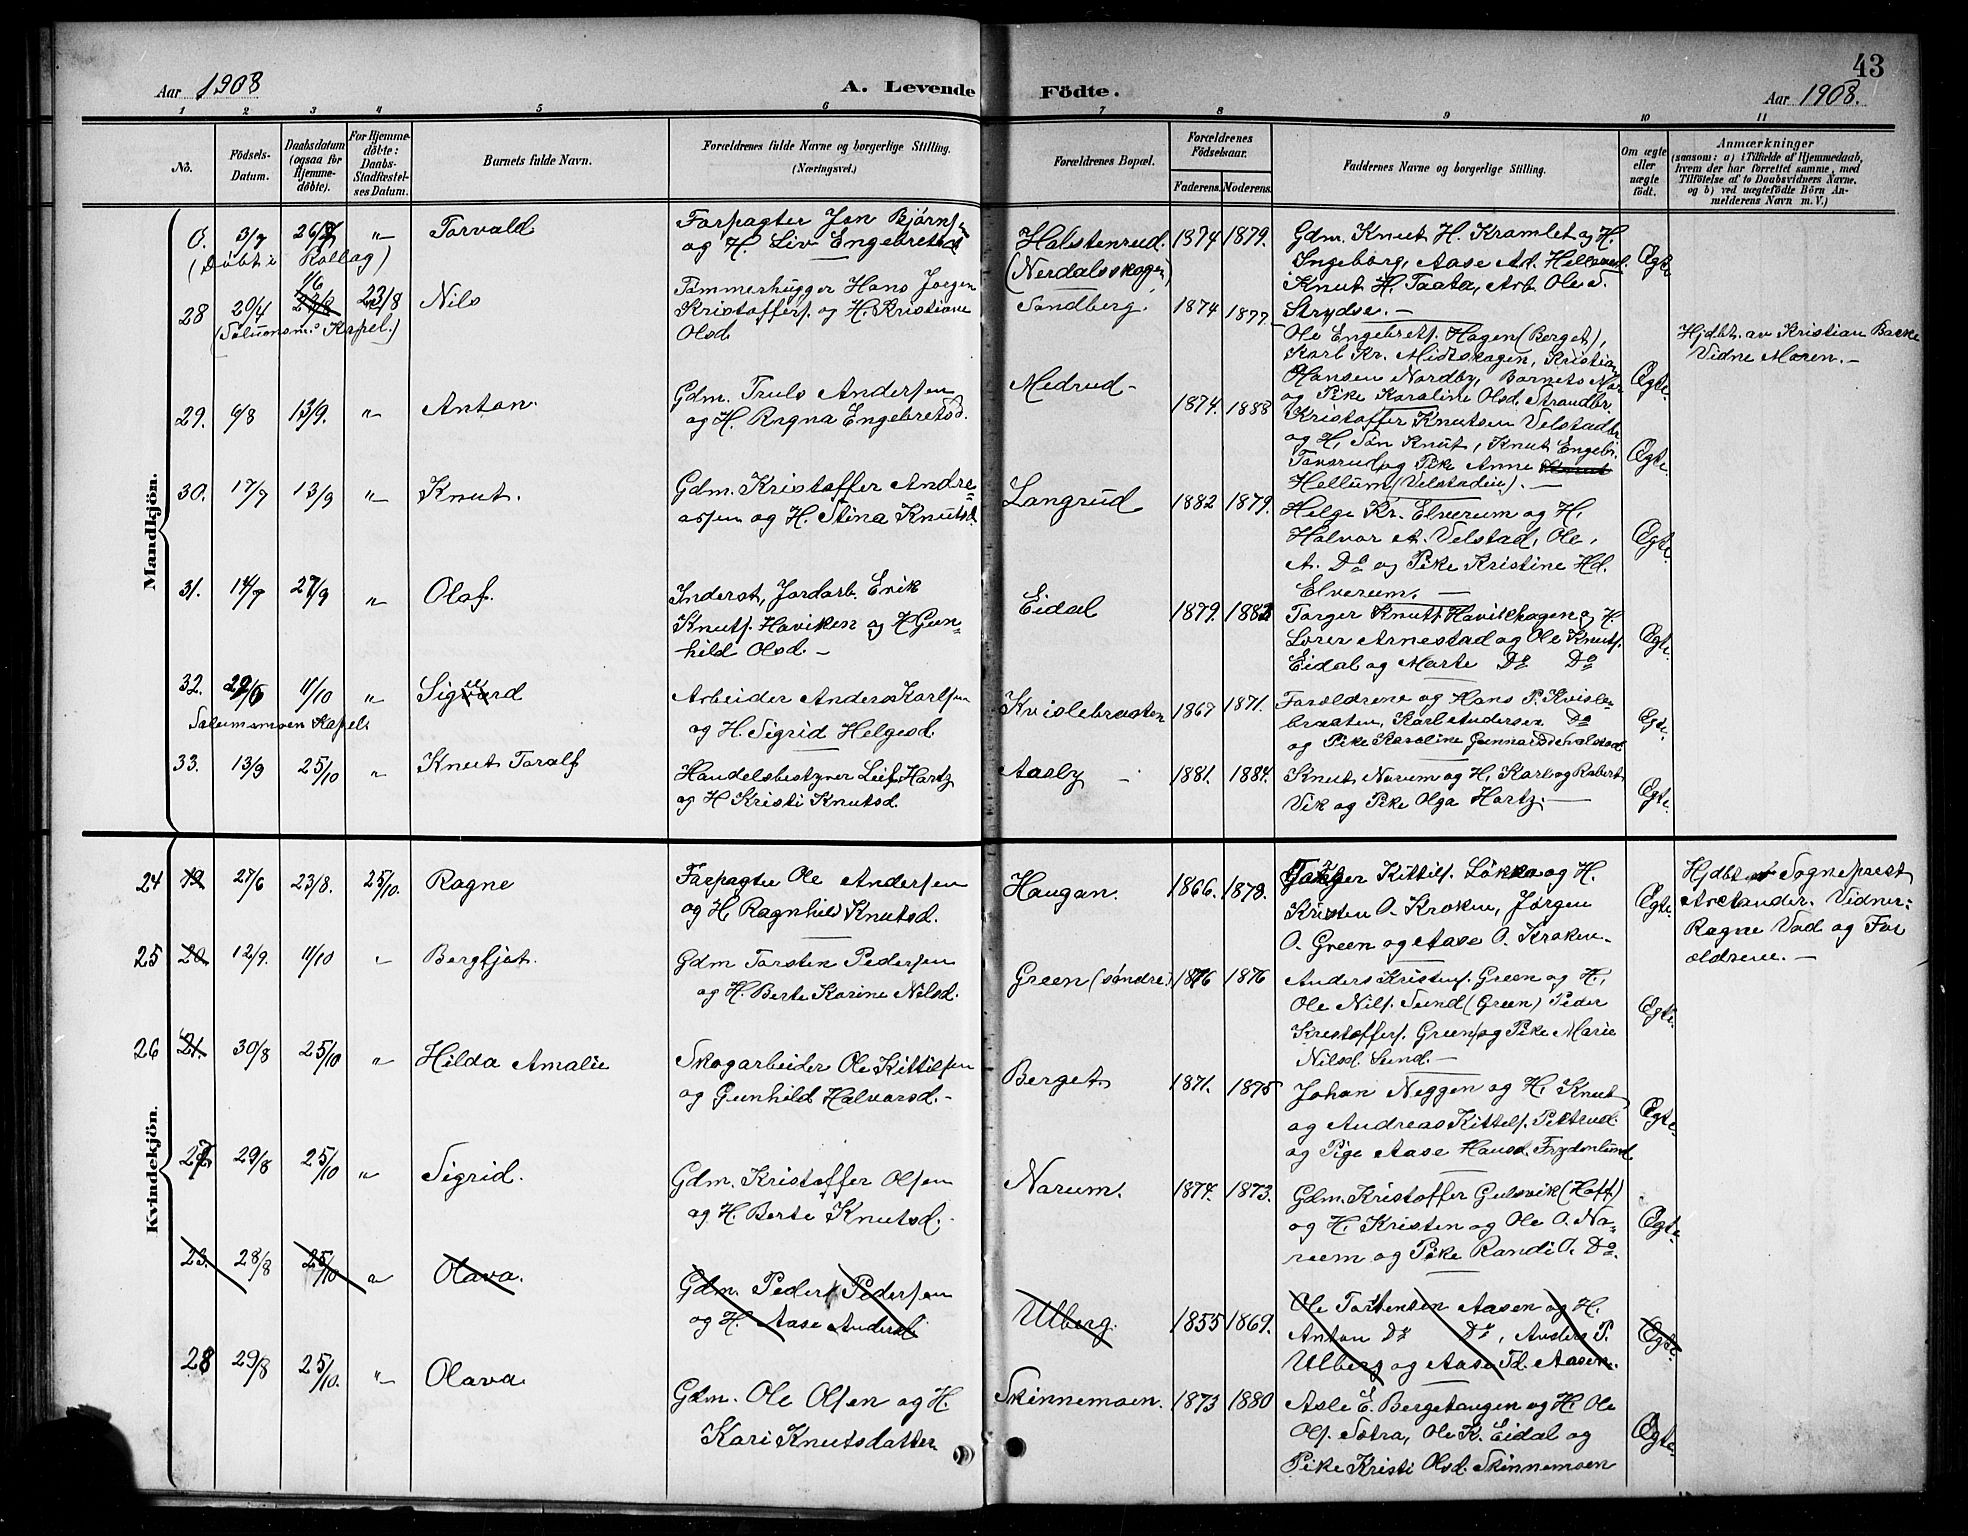 43
Aar 1908
A. Levende Födte.
Aar 1908.
1 2 3 4 5 6 7 8 9 10 11
No.
Födsels-
Datum.
Daabsdatum
(ogsaa for
Hjemme-
döbte).
For Hjemme-
döbte:
Daabs-
Stadfæstel-
ses Datum.
Barnets fulde Navn.
Forældrenes fulde Navne og borgerlige Stilling.
(Næringsvei.)
Forældrenes Bopæl.
Forældrenes
Födselsaar.
Faderens. Moderens.
Faddernes Navne og borgerlige Stilling.
Om ægte
eller
uægte
födt.
Anmærkninger
(saasom: a) i Tilfælde af Hjemmedaab,
hvem der har forrettet samme, med
Tilföielse af to Daabsvidners Navne,
og b) ved uægtefödte Börn An-
melderens Navn m. V.)
Mandkjön.
0. 3/7 26/7 " Torvald
(Döbt i Rollag)
Forpagter Jon Bjørns.
og H. Liv Engebretsd.
Halstenrud.
(Nerdalsskogen)
1874 1879.
Gdm. Knut H. Kramlet og H.
Ingeborg, Aase Ad. Hellerud.
Knut H. Taata, Arb. Ole S.
Strydse. -
Ægte
28 20/4 16 23/8 23/8 Nils
(Solumsm. Kapel.)
Tømmerhugger Hans Jørgen
Kristoffers. og H. Kristiane
Olsd
Sandberg.
1874 1877.
Ole Engebrets. Hagen (Berget),
Karl Kr. Midtskogen, Kristian
Hansen Nordby, Barnets Mor
og Pike Karoline Olsd. Strandbr.
Ægte.
Hjdbt. av Kristian Bakke
Vidne Moren. -
29. 6/8 13/9. " Anton.
Gdm. Truls Andersen
og H. Ragna Engebretsd.
Medrud -
1874. 1888
Kristoffer Knutsen Velstadbr.
og H, Søn Knut, Knut Engebr.
Tansrud og Pike Anne
Hellum (Velstadeie). -
Ægte.
30. 17/7 13/9 " Knut.
Gdm. Kristoffer Andre=
assen og H. Stina Knutsd.
Langrud
1882 1879.
Helge Kr. Elverum og H,
Halvor A. Velstad, Ole,
A. Do og Pike Kristine Hd.
Elverum. -
Ægte.
31. 14/7 27/9 " Olaf.
Inderst, Jordarb. Erik
Knuts. Haviken og H Gun=
hild Olsd. -
Eidal
1879. 1882
Torger Knuts Havikhagen og H.
Lorer Arnestad og Ole Knuts.
Eidal og Marte Do Do
Ægte.
32. 29/6 11/10 " Sigurd
Solumsmoen Kapel
Arbeider Anders Karlsen
og H. Sigrid Helgesd.
Kvislebraaten
1867 1871.
Forældrene og Hans P. Kvisle-
braaten, Karl Andersen Do
og Pike Karoline Gunnarsd. Velstad
Ægte.
33. 13/9 25/10 " Knut Toralf
Handelsbestyrer Leif Hartz
og H Kristi Knutsd.
Aasby -
1881. 1884.
Knut Norum og H, Karl og Robert
Vik og Pike Olga Hartz. -
Ægte.
Kvindekjön.
24 19. 27/6 23/8. 25/10. Ragne
Forpagter Ole Andersen
og H, Ragnhild Knutsd.
Haugan.
1866. 1873.
Torger Kittils. Løkka og H.
Kristen O. Kroken, Jørgen
O. Green og Aase O. Kroken-
Ægte.
Hjdbt af Sogneprest
Arctander. Vidner:
Ragne Vad og For
ældrene. -
25 20. 12/9. 11/10 " Bergljot.
Gdm Torsten Pedersen
og H. Berte Karine Nilsd.
Green (søndre)
1876 1876
Anders Kristens. Green og H,
Ole Nils. Sund (Green) Peder
Kristoffers. Green og Pike Marie
Nilsd. Sund. -
Ægte.
26 21. 30/8 25/10 " Hilda Amalie
Skogarbeider Ole Kittilsen
og Gunhild Halvorsd. -
Berget
1871. 1875
Johan Neggen og H. Knut
og Andreas Kittels. Pettrud.
og Pige Aase Hansd. Frydenlund
Ægte.
27 29/8 25/10 " Sigrid.
Gdm. Kristoffer Olsen
og H. Berte Knutsd. -
Norum.
1874. 1873.
Gdm. Kristoffer Gulsvik (Hoff)
og H. Kristen og Ole O. No=
rum og Pike Randi O. Do.
Ægte.
23. 28/8 25/10 " Olava.
Gdm. Peders Pedersen
og H. Aase Andersd.
Ulberg.
1855 1869.
Ole Torstensen Aasen og H.
Anton Do Do, Anders P.
Ulberg og Aase Td. Aasen.
Ægte.
28 29/8 25/10. " Olava
Gdm. Ole Olsen og H.
Kari Knutsdatter
Skinnemoen.
1873 1880
Asle E. Bergehaugen og H, Ole
Ols. Sotra, Ole K. Eidal og
Pike Kristi Olsd. Skinnemoen
Ægte.